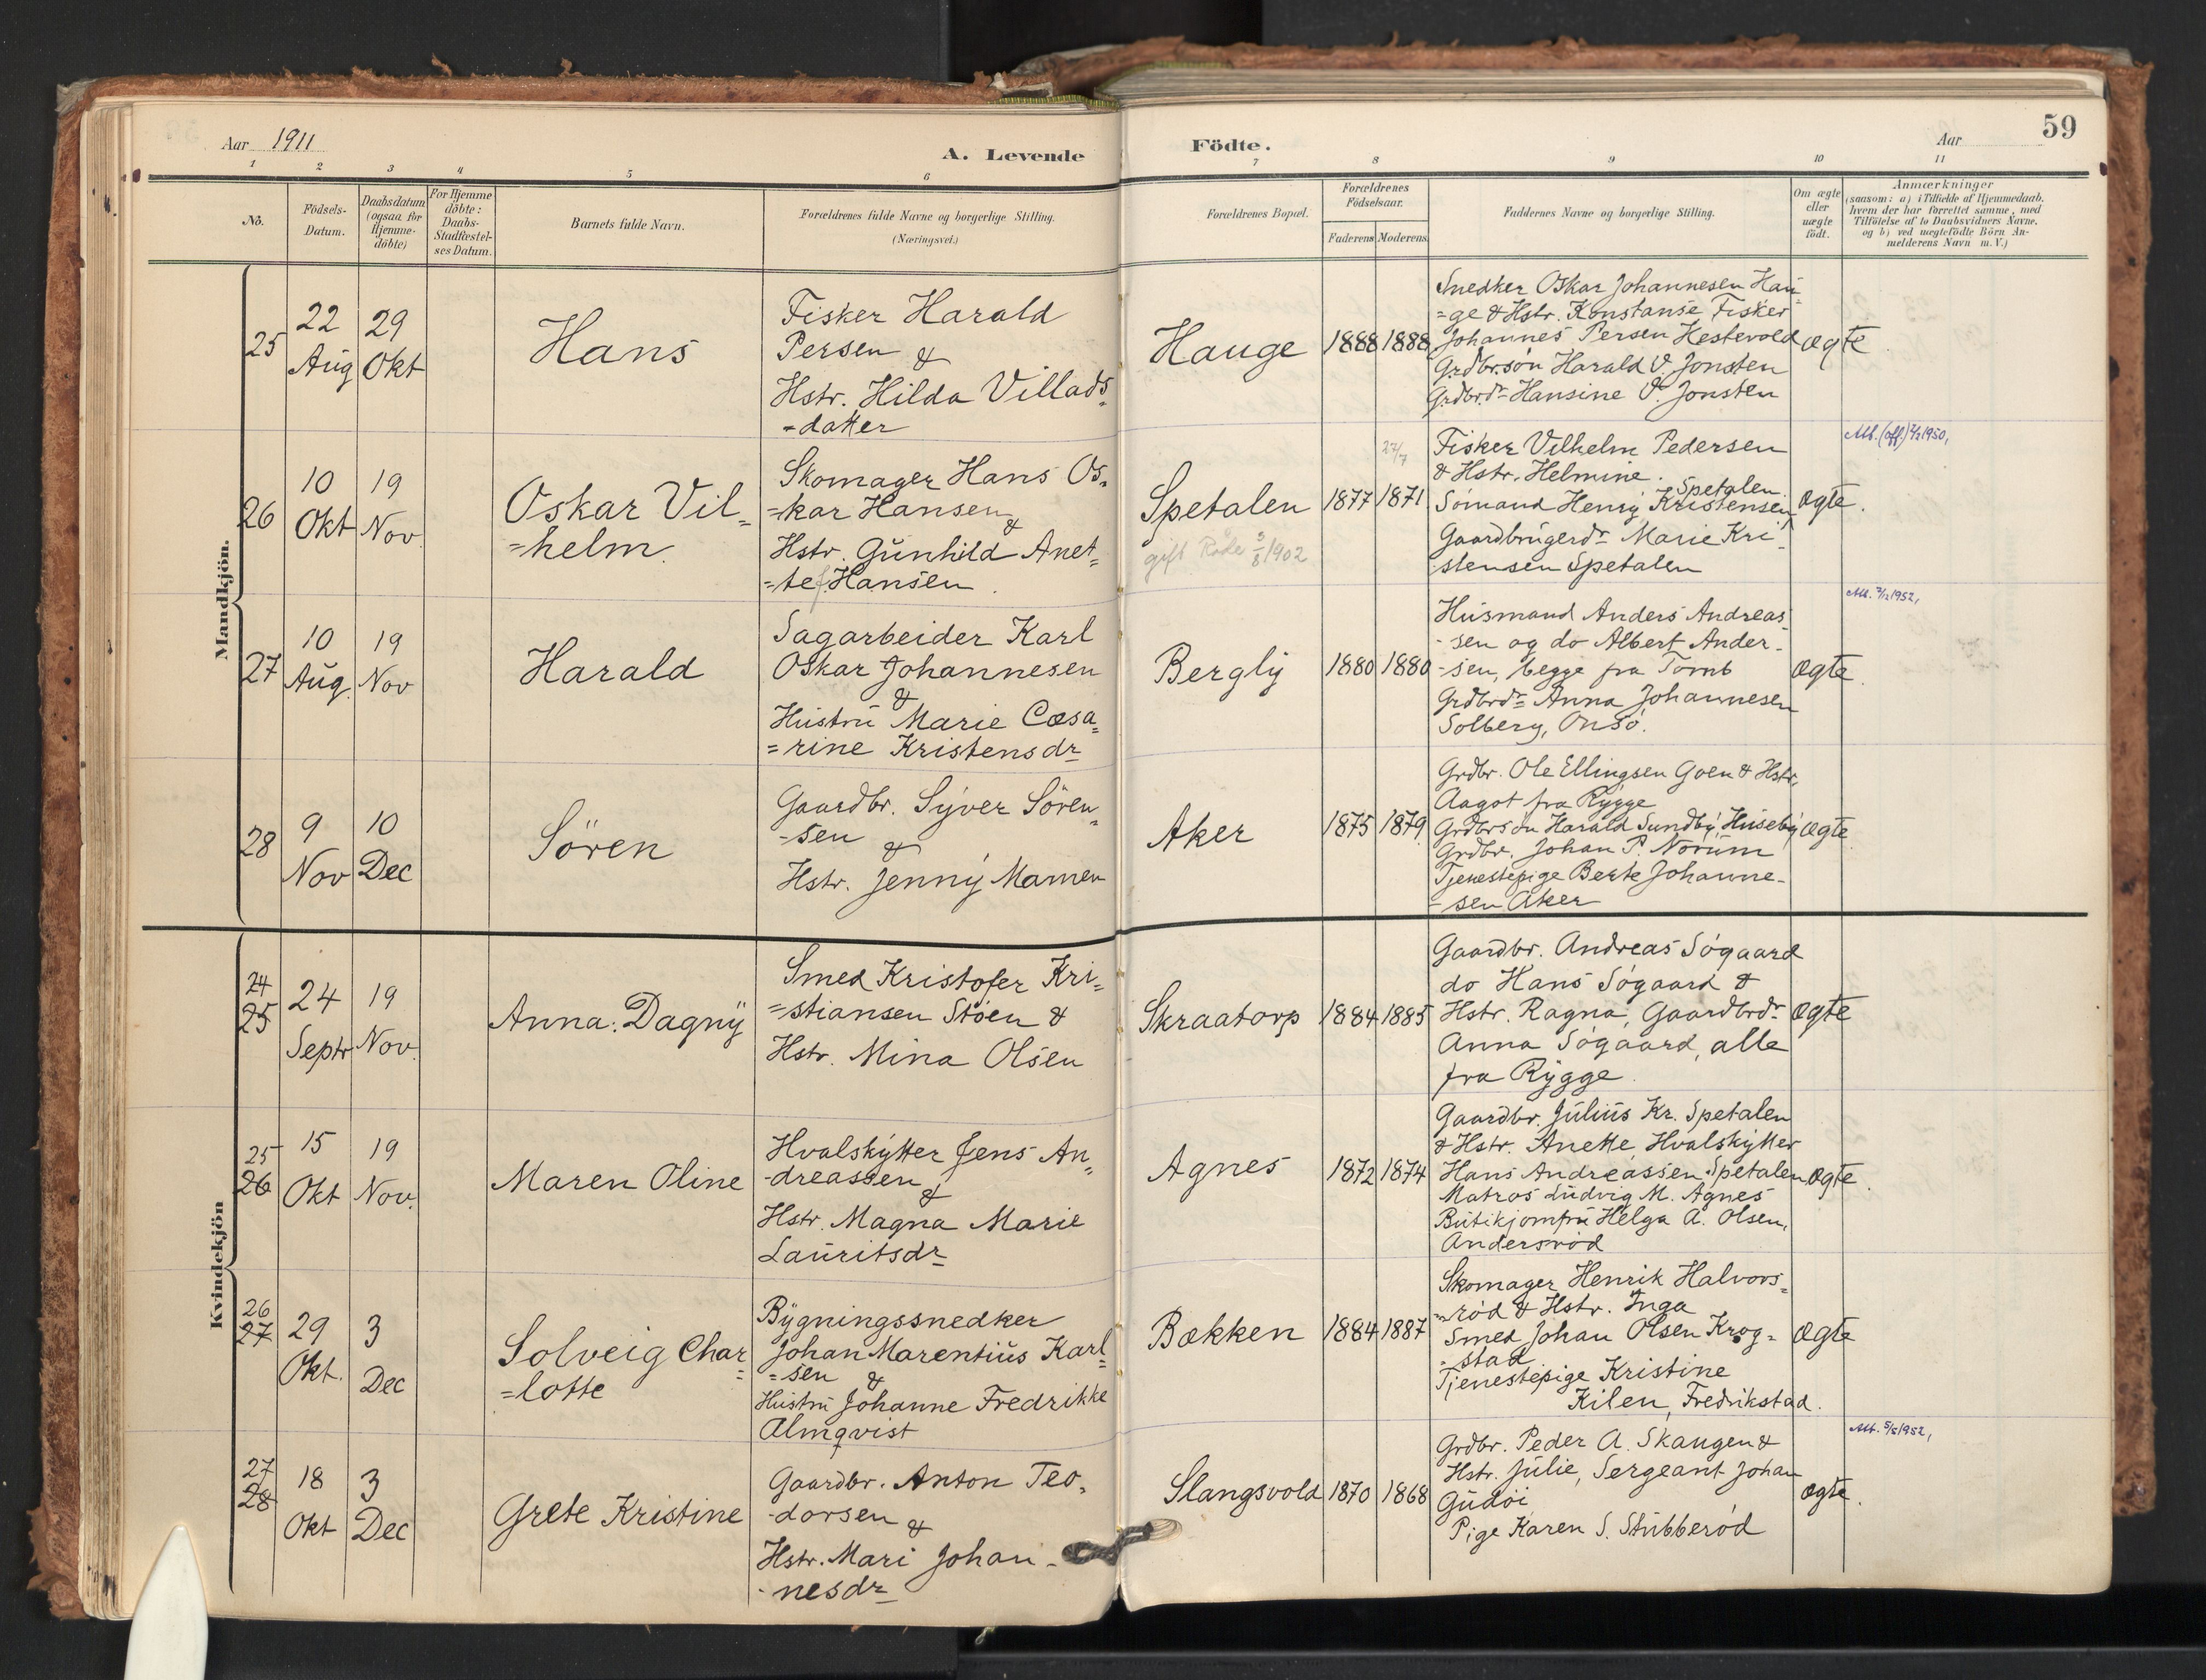 59
Aar 1911
A. Levende
Födte.
Aar
1 2 3 4 5 6 7 8 9 10 11
No.
Födsels-
Datum.
Daabsdatum
(ogsaa for
Hjemme-
döbte)
For Hjemme
döbte:
Daabs-
Stadfæstel-
ses Datum.
Barnets fulde Navn.
Forældrenes fulde Navne og borgerlige Stilling.
(Næringsvei.)
Forældrenes Bopæl.
Forældrenes
Födselsaar.
Faderens
Moderens.
Faddernes Navne og borgerlige Stilling.
Om ægte
eller
uægte
födt.
Anmærkninger
(saasom: a) i Tilfælde af Hjemmedaab,
hvem der har forrettet samme, med
Tilföielse af to Daabsvidners Navne,
og b) ved uægtefödte Börn An-
melderens Navn m. V.)
Mandkjön.
25
22
Aug
29
Okt
Hans
Fisker Harald
Persen &
Hstr. Hilda Villads=
=datter
Hauge
1888
1888
Snedker Oskar Johannesen Hau=
=ge & Hstr. Konstanse, Fisker
Johannes Persen Hestevold
Grdbr.søn Harald V. Jonsten
Grdbrdr Hansine V. Jonsten
Ægte
26
10
Okt
19
Nov.
Oskar Vil=
=helm.
Skomager Hans Os=
=kar Hansen
&
Hstr. Gunhild Anet=
=te f. Hansen.
Spetalen
gift Råde 3/8 1902
1877
27/7
1871
Fisker Vilhelm Pedersen
& Hstr. Helmine. Spetalen.
Sømand Henry Kristensen
Gaardbrugerdr Marie Kri-
stensen Spetalen
Ægte.
27
10
Aug.
19
Nov
Harald
Sagarbeider Karl
Oskar Johannesen
&
Hustru Marie Cæsa=
=rine Kristensdr
Bergly
1880
1880
Husmand Anders Andreas
-sen og do Albert Ander-
-sen, begge fra Tomb
Grdbrdr Anna Johannesen
Solberg, Onsø.
Ægte.
28
9
Nov
10
Dec
Sören
Gaardbr. Syver Sören=
-sen &
Hstr. Jenny Mamen
Aker
1875
1879
Grdbr. Ole Ellingsen Goen & Hstr.
Aagot fra Rygge
Grdbrsøn Harald Sundby, Huseby
Grdbr. Johan P. Norum
Tjenestepige Berte Johanne-
-sen Aker
Ægte.
Kvindekjön
24
25
24
Septr
19
Nov.
Anna Dagny
Smed Kristofer Kri=
=stiansen Støen &
Hstr. Mina Olsen
Skraatorp
1884
1885
Gaardbr. Andreas Søgaard
do Hans Søgaard &
Hstr. Ragna, Gaardbrdr
Anna Søgaard, alle
fra Rygge.
Ægte
25
26
15
Okt
19
Nov.
Maren Oline
Hvalskytter Jens An=
-dreassen
&
Hstr. Magna Marie
Lauritsdr
Agnes
1872
1874
Gaardbr. Julius Kr. Spetalen
& Hstr. Anette, Hvalskytter
Hans Andreassen Spetalen
Matros Ludvig M. Agnes
Butikjomfru Helga A. Olsen,
Andersrød
Ægte.
26
27
29
Okt.
3
Dec
Solveig Char=
=lotte
Bygningssnedker
Johan Marentius Karl=
=sen &
Hustru Johanne Fredrikke
Almqvist
Bækken
1884
1887
Skomager Henrik Halvors=
=rød & Hstr. Inga
Smed Johan Olsen Krog=
=stad
Tjenestepige Kristine
Kilen, Fredrikstad.
Ægte
27
28
18
Okt
3
Dec
Grete Kristine
Gaardbr. Anton Teo=
-dorsen &
Hstr. Mari Johan-
-nesdr
Slangsvold
1870
1868
Grdbr. Peder A. Skaugen &
Hstr. Julie, Sergeant Johan
Gudøi
Pige Karen S. Stubberød
Ægte.